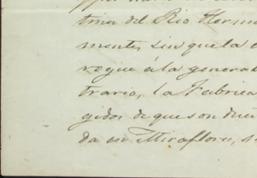 tina del Rio Her
mente, sin que la
regue á la genera
traria, la Fabrica
gidor de que son due
da en Miraflores, s